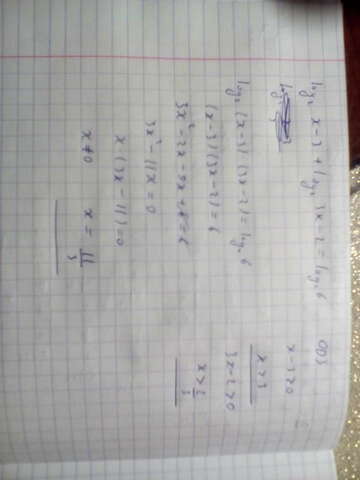 log₂ x-3 + log₂ 3x-2 = log₂ 6
log₂ (x-3)·(3x-2) = log₂ 6
(x-3)(3x-2) = 6
3x²-2x-9x+6=6
3x²-11x=0
x·(3x-11)=0
x≠0 x = 11/3
ОДЗ
x-3>0
x>3
3x-2>0
x>2/3